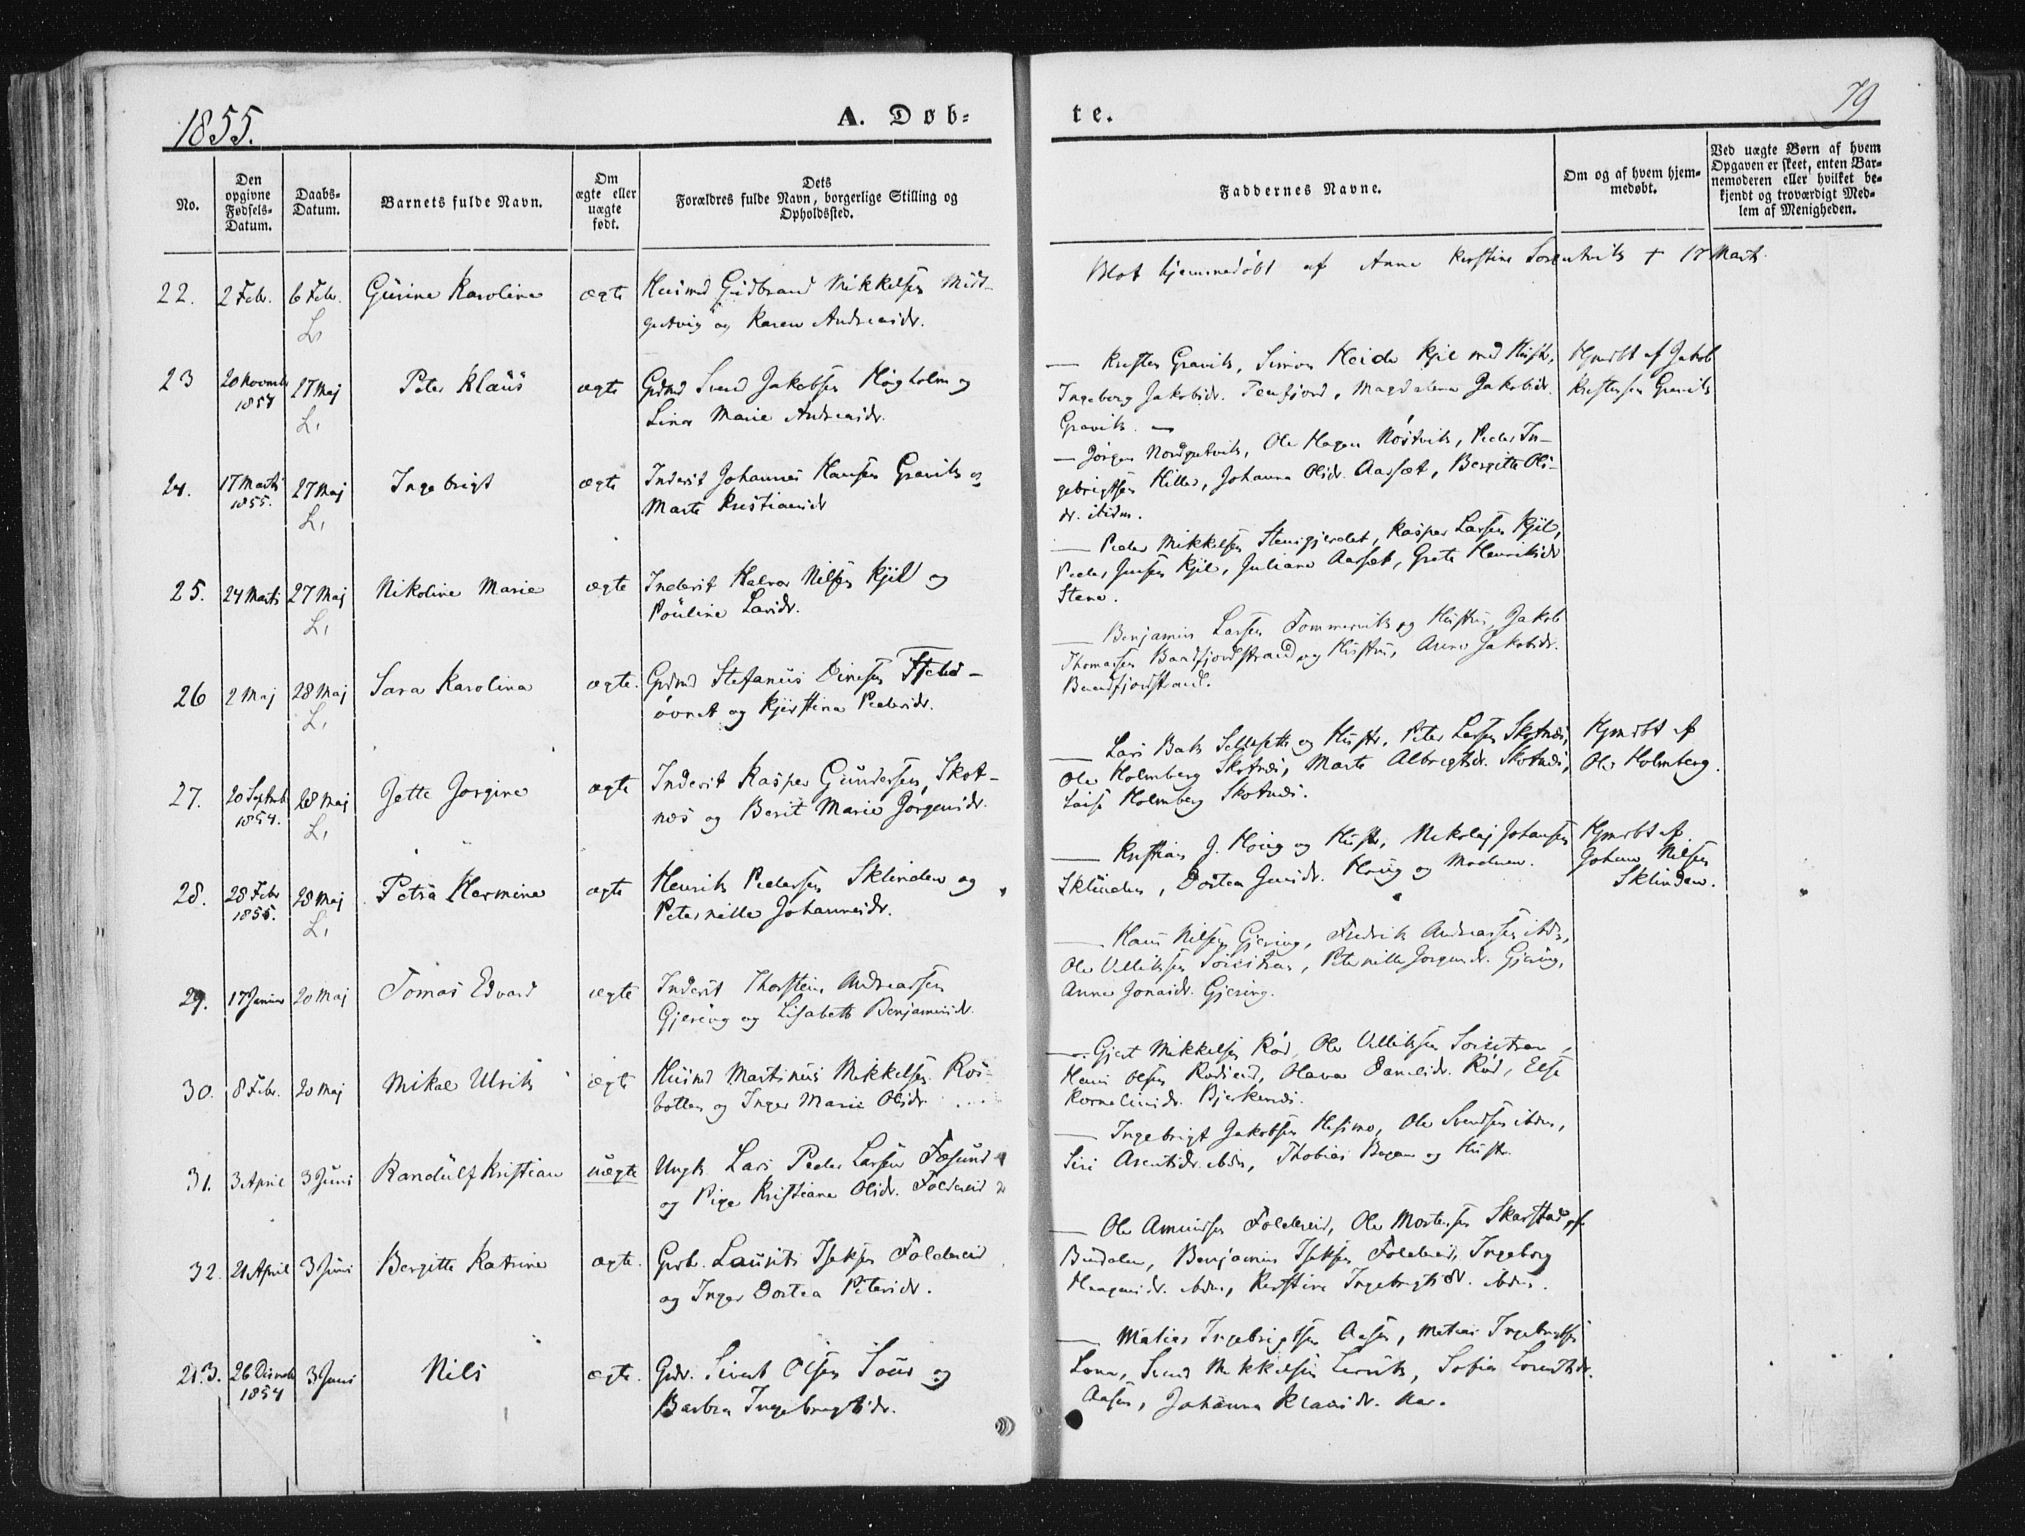 1855.
A. Døb-
te.
79
No.
Den
opgivne
Fødsels-
Datum.
Daabs-
Datum.
Barnets fulde Navn.
Om
ægte eller
uægte
født.
Dets
Forældres fulde Navn, borgerlige Stilling og
Opholdssted.
Faddernes Navne.
Om og af hvem hjem-
medøbt.
Ved uægte Børn af hvem
Opgaven er skeet, enten Bar-
nemoderen eller hvilket be-
kjendt og troværdigt Med-
lem af Menigheden.
22. 2 Febr. 6 Febr. Gurine Karoline ægte Husmd Gudbrand Mikkelsen Midt-
gutvig og Karen Andreasdr.
L.
Blot hjemmedøbt af Anne Kerstine + 17 Marts.
23 20 Novembr 27 Maj Peter Klaus ægte Grdmd Svend Jakobsen Høgholm og
1854 L. Marie Andreasdr.
Kristen Gravik, Simon Heide Kjil med Hustr,
Ingeborg Jakobsdr. Terfjord, Magdalena Jakobsdr.
Gravik.
Hjmdbt af Jakob
Kristensen Gravik
24. 17 Marts 27 Maj Ingebrigt ægte Inderst Johannes Hansen Gravik og
1855. L. Marte Kristiansdr
Jørgen Nordgutvik, Ole Hagen Røstvik, Peder In-
gebrigtsen Hiller, Johanna Olsdr. Aarsæt, Bergitte Ols-
dr. ibidm.
25. 24 Marts 27 Maj Nikoline Marie ægte Inderst Halvor Nilsen Kjil og
L. Pouline Larsdr.
Peder Mikkelsen Stensgjerdet, Kasper Larsen Kjil,
Peder Jensen Kjil, Juliana Aarsæt, Grete Henriksdr
Stene.
26 2 Maj 28 Maj Sara Karolina ægte. Grdmd Stefanus Dinesen
L. og Kjerstina Pedersdr.
Benjamin Larsen Tommervik og Hustru, Jakob
Thomassen Bandfjordstrand og Hustru, Anne Jakobsdr.
27. 20 Septmbr 28 Maj Jette Jørgine ægte Inderst Kasper Gundersen, Skot-
1854. L. nes og Berit Marie Jørgensdr.
Lars Bak og Hustr, Peter Larsen Skotnæs,
Ole Holmberg Skotnæs, Marte Albregtsdr. Skotnæs,
Holmberg Skotnæs.
Hjmdbt af
Ole Holmberg.
28. 28 Febr 28 Maj Petra Hermine ægte Henrik Pedersen Sklinden og
1855. L. Peternille Johannesdr.
Kristian J. Horig og Hustr, Nikolaj Johansen
Sklinden, Dortea Jensdr. Horig og Moderen.
Hjmdbt af
Johan Nilsen
Sklinden.
29. 17 Januar 20 Maj Tomas Edvard ægte Inderst Thorstein Andreassen
Gjering og Lisabeth Benjaminsdr.
Hans Nilsen Gjering, Fredrik Andreassen ibdm,
Ole Ulliksen Peternille Jørgensdr. Gjering,
Anne Jonasdr. Gjering.
30. 8 Febr. 20 Maj Mikal Ulrik ægte Husmd Martinus Mikkelsen Ros-
botten og Inger Marie Olsdr
Gjert Mikkelsen Rød, Ole Ulliksen
Hans Olsen Olava Danielsdr. Rød, Else
Korneliusdr. Bjerkenæs.
31. 3 April 3 Juni Randulf Kristian uægte Ungk. Lars Peder Larsen Fæsund
og Pige Kristiane Olsdr. Foldereid
Ingebrigt Jakobsen Hesimo, Ole Svendsen ibdm,
Siri Arentsdr. ibdm, Thobias og Hustr.
32. 21 April 3 Juni Bergitte Katrine ægte. Grdb. Laurits Isaksen Foldereid
og Inger Dortea Petersdr.
Ole Amundsen Foldereid, Ole Mortensen Skarstad
Benjamin Isaksen Foldereid, Ingeborg
Haagensdr. ibdm, Kerstine Ingebrigtsdr. ibdm.
26 Decmbr 3 Juni Nils ægte. Grdm. Sivert Olsen og
1854 Barbra Ingebrigtsdr.
Matias Ingebrigtsen Aasen, Matias Ingebrigtsen
Svend Mikkelsen Sofia Lorentsdr.
Aasen, Johanna Klausdr. Aar.